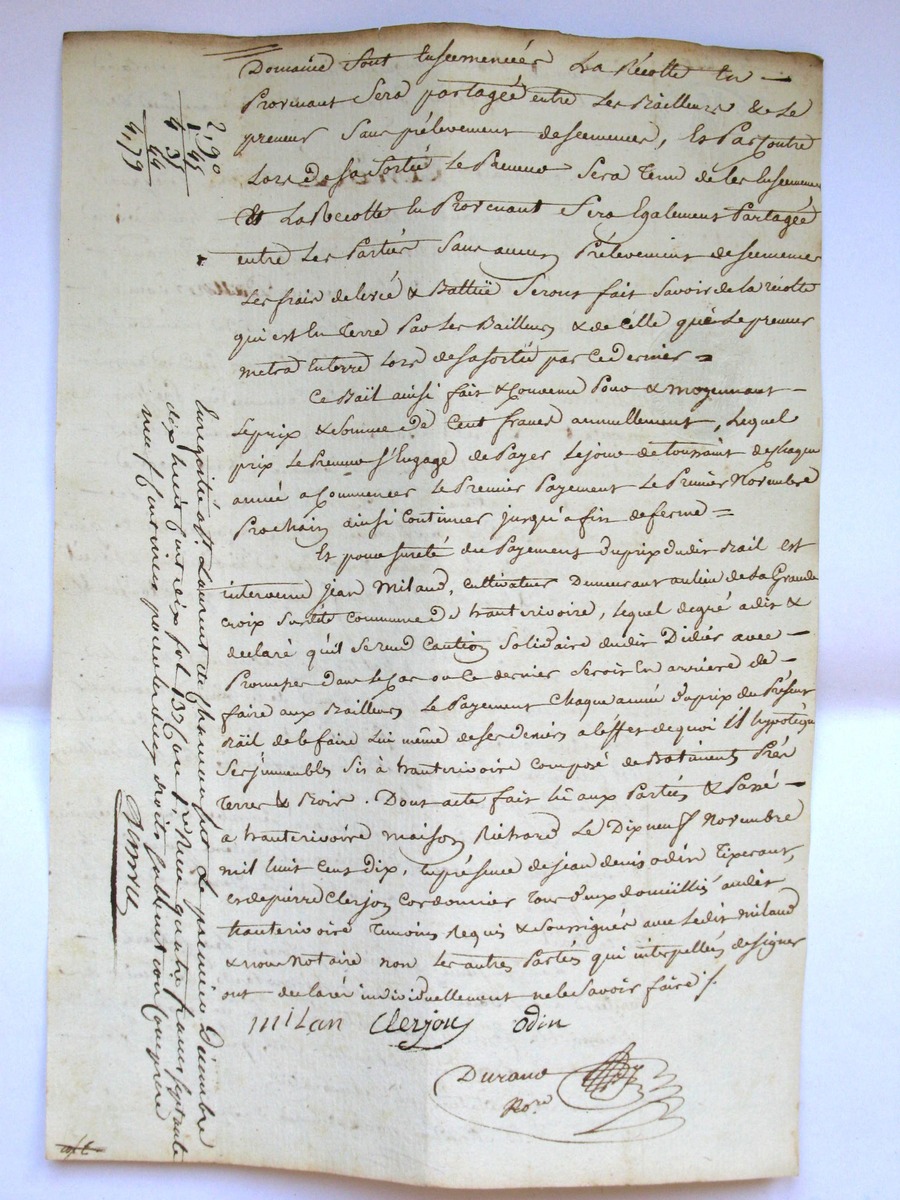 Domaine Sont Enseemencées La Récolte En
Provenant Sera partagée entre Les Bailleurs & Le
preneur Sans prélevement de seemences, Et Par Contre
Lors de sa Sortie Le Preneur Sera Tenu de les Enseemencer
Et La Recolte En Provenant Sera Egalement Partagée
entre Les Parties Sans aucun Prélevement de seemences
Les frais de levée & Battue Seront fait Savoir de la récolte
qui est En Terre Par Les Bailleurs & de Celle que Le preneur
metra En terre Lors de sa sortie par Ce dernier =
Ce Bail ainsi fait & Convenu Pour & moyennant
Le prix & Somme de Cent francs annuellement, Lequel
prix Le Preneur S'Engage de Payer Le jour de toussaint de chaque
année a Commencer Le Premier Payement Le Premier Novembre
Prochain ainsi Continuer jusqu'a fin de ferme =
Et pour sureté du Payement du prix dudit Bail est
intervenu Jean Miland, Cultivateur Demeurant au lieu de La Grande
croix Susdite commune d'hauterivoire, Lequel de gré a dit &
declaré qu'il Se rend Caution Solidaire dudit Didier avec
Promesse Dans le Cas ou Ce dernier Seroit En arriere de
faire aux Bailleurs Le Payement Chaque année du prix du Présent
Bail de le faire Lui même de ses Deniers a L'effet de quoi Il hypotéque
Ses immeubles Sis à hauterivoire Composé de Batiments Prés
Terres & Bois. Dont acte fait Lu aux Parties & Passé
a hauterivoire maison Richard Le Dix neuf Novembre
mil huit Cent Dix, En présence de jean denis odin Tixerant,
et de pierre Clerjon Cordonnier Tous deux domiciliés audit
hauterivoire Temoins Requis & Soussignés avec Ledit Miland
& nous Notaire non Les autres Parties qui interpellées de signer
ont declaré individuellement ne le Savoir faire /.
milan Clerjon odin
Durand
No.re
2,90
1 45
4 35
44
4,79
Enregistré a St Laurent de Chamousset Le premier Décembre
dix huit Cent dix fol 137 an Ve reçu quatre francs septante
neuf Centimes pour les deux droits subvention Comprise